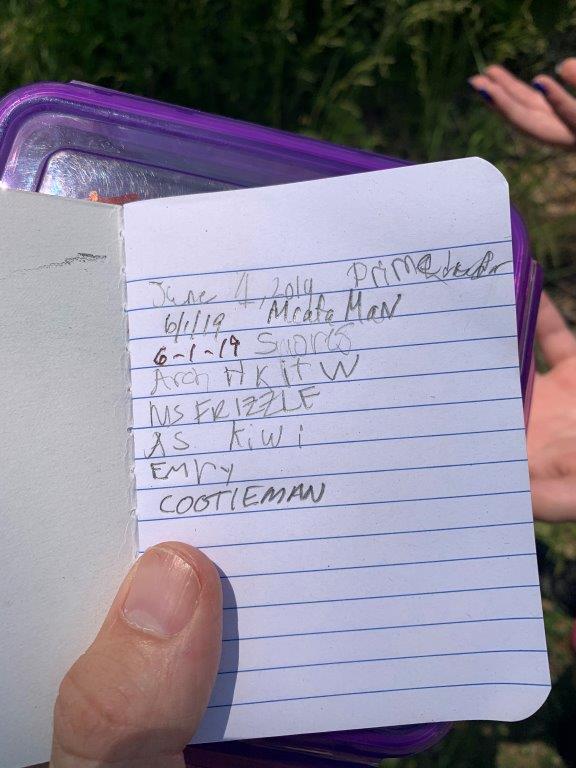 June 4, 2019 Prime
6/1/19 Meata Man
6-1-19 Smores
Arch H Kit W
MS FRIZZLE
AS Kiwi
EMry
COOTIEMAN